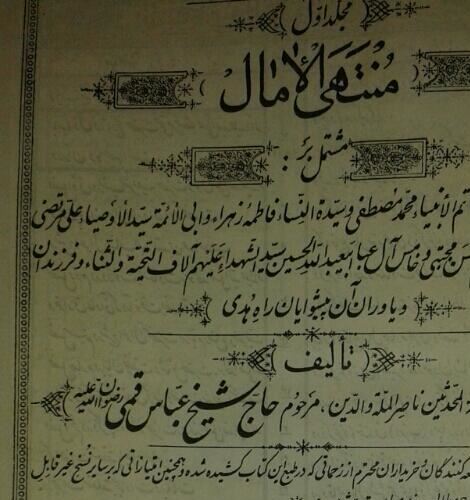 مجلد اوّل
مُنتَهَی الآمال
مشتمل بر :
تم الأنبیاء محمّد مصطفی و سیّدة النّساء فاطمهٔ زهراء و ابی الأئمّة سیّد الأوصیاء علی مرتضی
سن مجتبی و خامس آل عبا ابیعبد اللّه الحسین سیّد الشهداء عَلَیهِم آلاف التّحیّة و الثّناء و فرزندان
و یاوران آن پیشوایان راه هُدی
تألیف
ة المحدّثین ناصر الملّة و الدّین ، مرحوم حاج شیخ عبّاس قمی رضوان اللّه علیه
عه کنندگان و خریداران محترم از زحماتی که در طبع این کتاب کشیده شده و همچنین امتیازاتی که بر سایر نسخ غیر قابل